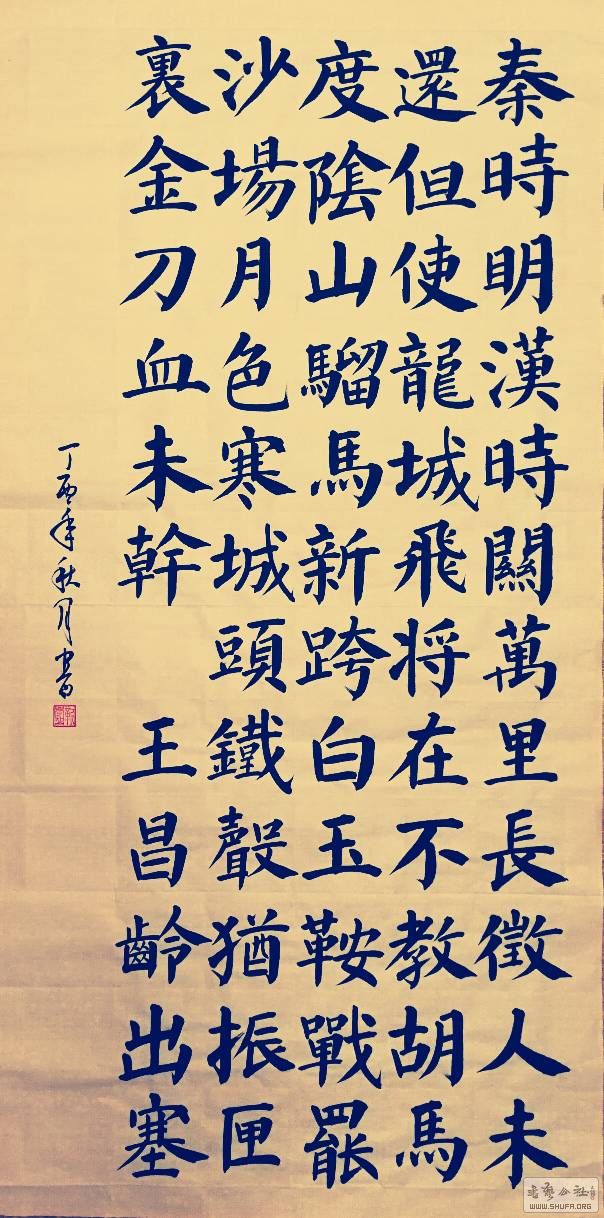 秦時明漢時關萬里長徵人未
還但使龍城飛将在不教胡馬
度陰山騮馬新跨白玉鞍戰罷
沙場月色寒城頭鐵聲猶振匣
裏金刀血未幹 王昌齡出塞
丁酉年秋月書
书艺公社
WWW.SHUFA.ORG